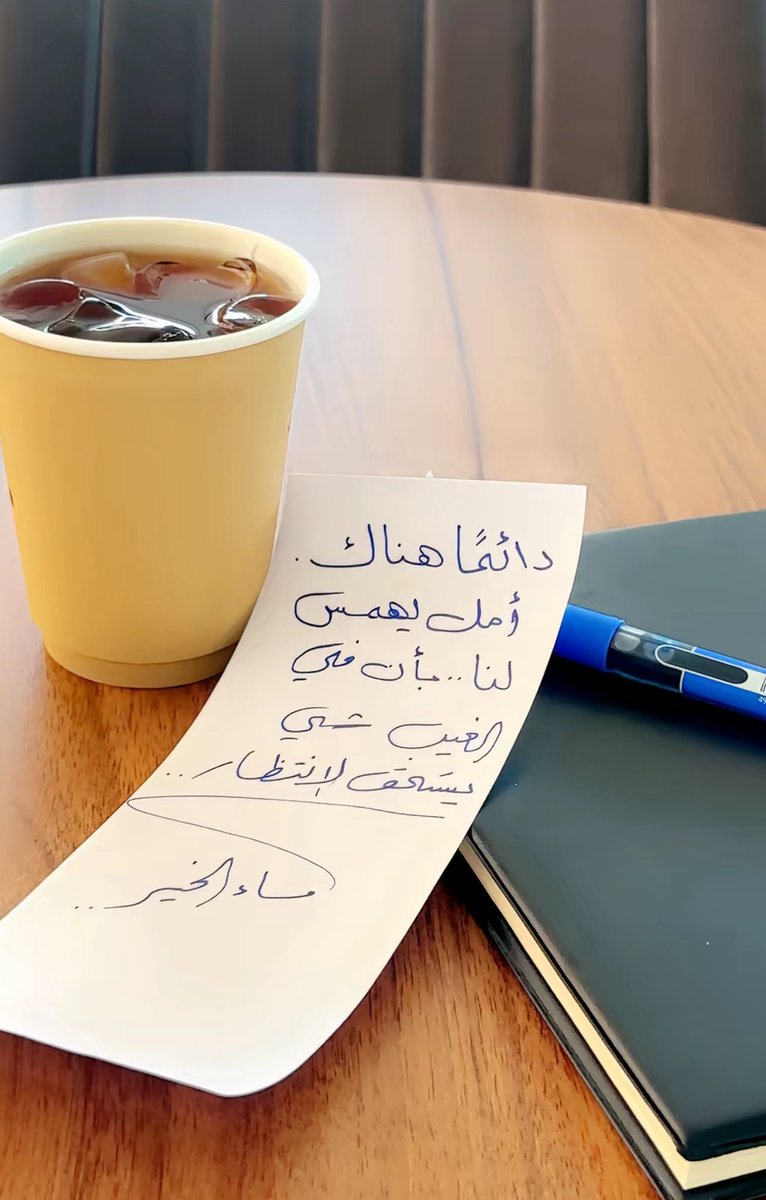 دائمًا هناك.
أمل يهمس
لنا.. بأن في
الغيب شيئ
يستحق الإنتظار..
مساء الخير..